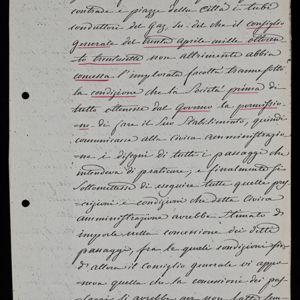 contrade e piazze della Città i tubi
conduttori del Gaz, su del che il consiglio
generale del trenta Aprile mille ottocen
to trentasette non altrimenti abbia
concessa l'implorata facoltà tranne sotto
la condizione che la Società prima di
tutto ottenesse dal Governo la permissio
ne di fare il suo Stabilimento, quindi
comunicasse alla civica amministrazio
ne i disegni di tutti i passaggi che
intendeva di praticare; e finalmente si
sottomettesse di eseguire tutte quelle pre
scrizioni e condizioni che detta Civica
amministrazione avrebbe stimato di
imporle nella concessione dei detti
passaggi, fra le quali condizioni fin
d'allora il Consiglio generale vi appo
neva quella che la concessione dei pas